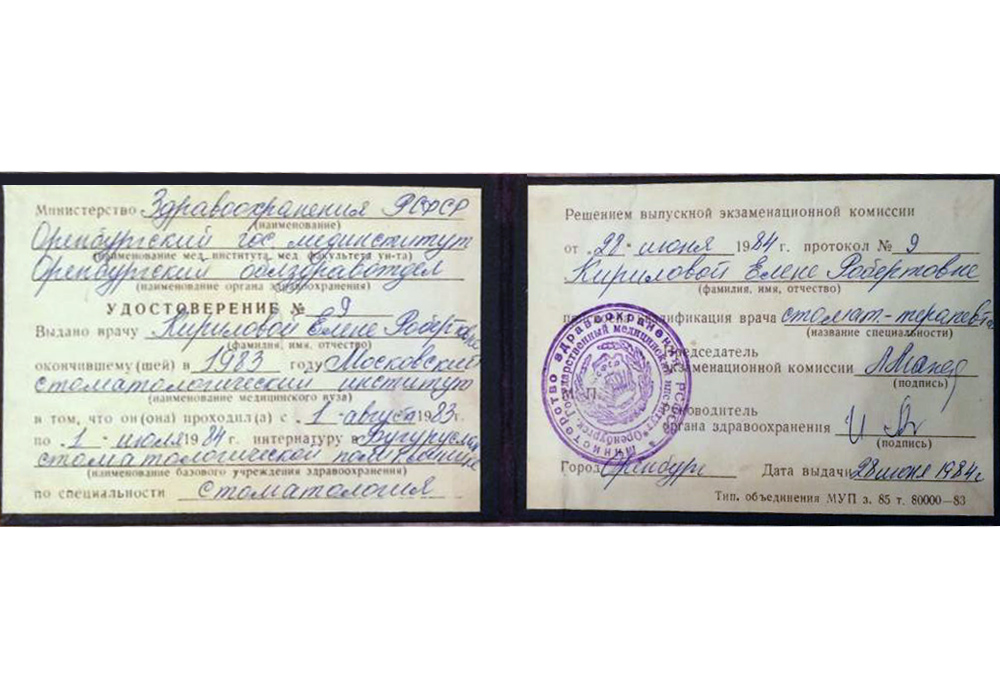 Министерство Здравоохранения РСФСР
(наименование)
Оренбургский гос. мединститут
(наименование мед. института, мед. факультета ун-та)
Оренбургский облздравотдел
(наименование органа здравоохранения)
УДОСТОВЕРЕНИЕ № 9
Выдано врачу Кириловой Елене Робертовне
(фамилия, имя, отчество)
окончившему(шей) в 1983 году Московский
стоматологический институт
(наименование медицинского вуза)
в том, что он(она) проходил(а) с 1 августа 1983г.
по 1 июля 1984 г. интернатуру в Бугуруслан
стоматологической поликлинике
(наименование базового учреждения здравоохранения)
по специальности стоматология
Решением выпускной экзаменационной комиссии
от "28" июня 1984 г. протокол № 9
Кириловой Елене Робертовне
(фамилия, имя, отчество)
квалификация врача стомат-терапевта
(название специальности)
Председатель
экзаменационной комиссии
(подпись)
М. П.
Руководитель
органа здравоохранения
(подпись)
Город Оренбург Дата выдачи 28 июня 1984г
Тип. объединения МУП з. 85 т. 80000—83
Министерство здравоохранения РСФСР
Оренбургск Государственный медицинский институт